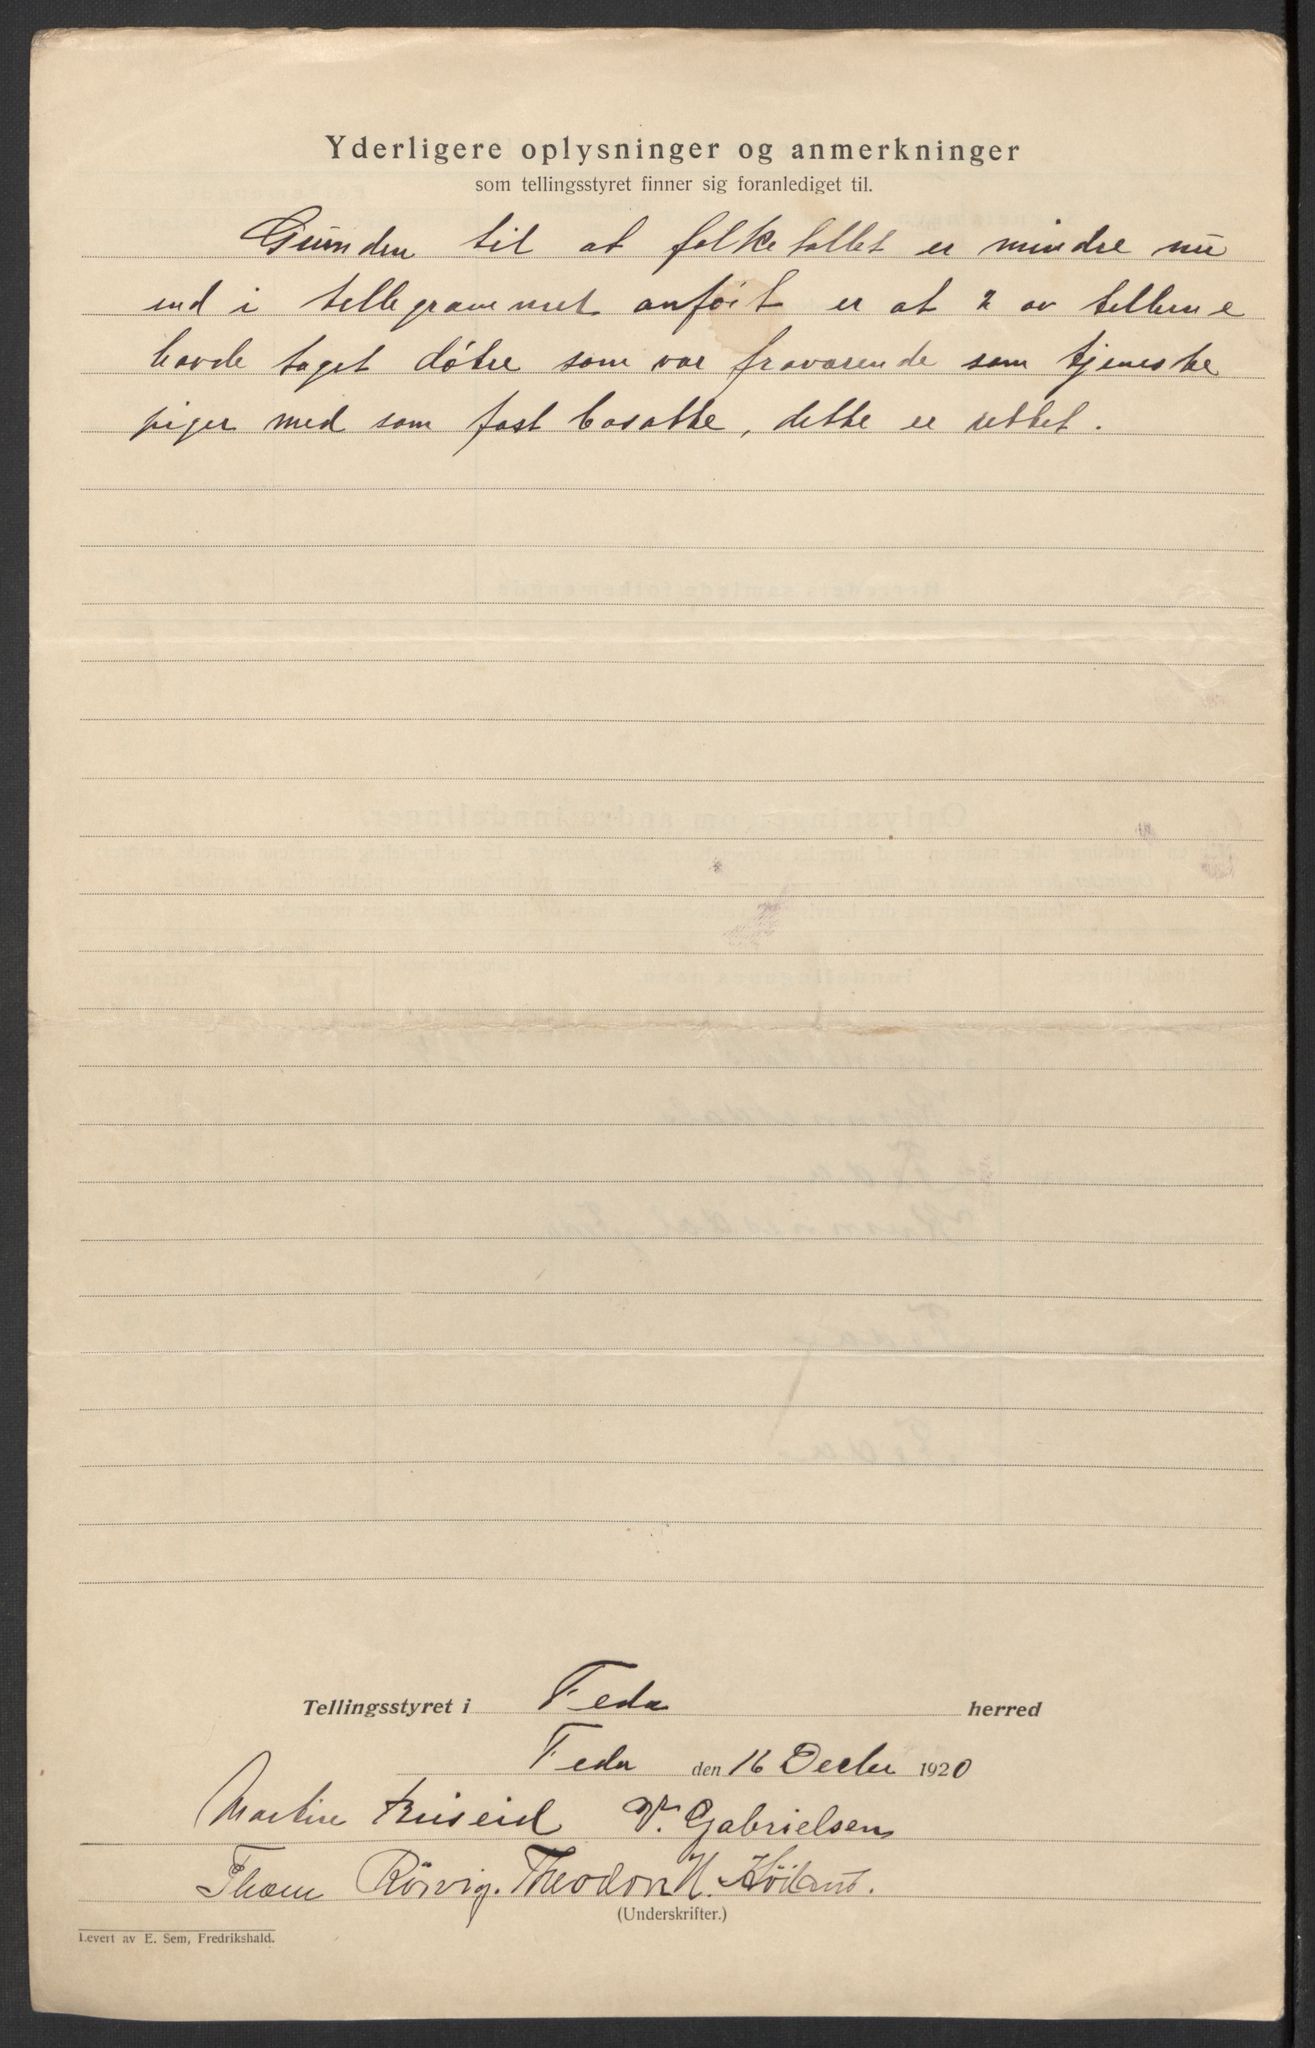 Yderligere oplysninger og anmerkninger
som tellingsstyret finner sig foranlediget til.
Grunden til at folketallet er mindre nu
end i tellegrammet anført er at 2 av tellerne
havde taget døtre som var fraværende som tjeneste
piger med som fast bosatte, dette er rettet.
Tellingsstyret i Feda herred
Feda den 16 Decbr 1920
Martin V. Gabrielsen
Thom Rörvig. Theodor H. Höiland.
(Underskrifter.)
Levert av E. Sem, Fredrikshald.